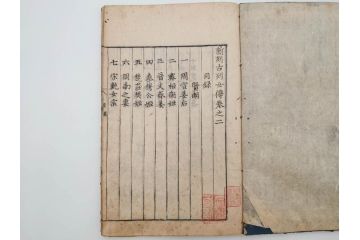 新刻古列女傳卷之二
目錄
賢明
一 周宣姜后
二 齊桓衛姬
三 晉文齊姜
四 秦穆公姬
五 楚莊樊姬
六 周南之妻
七 宋鮑女宗